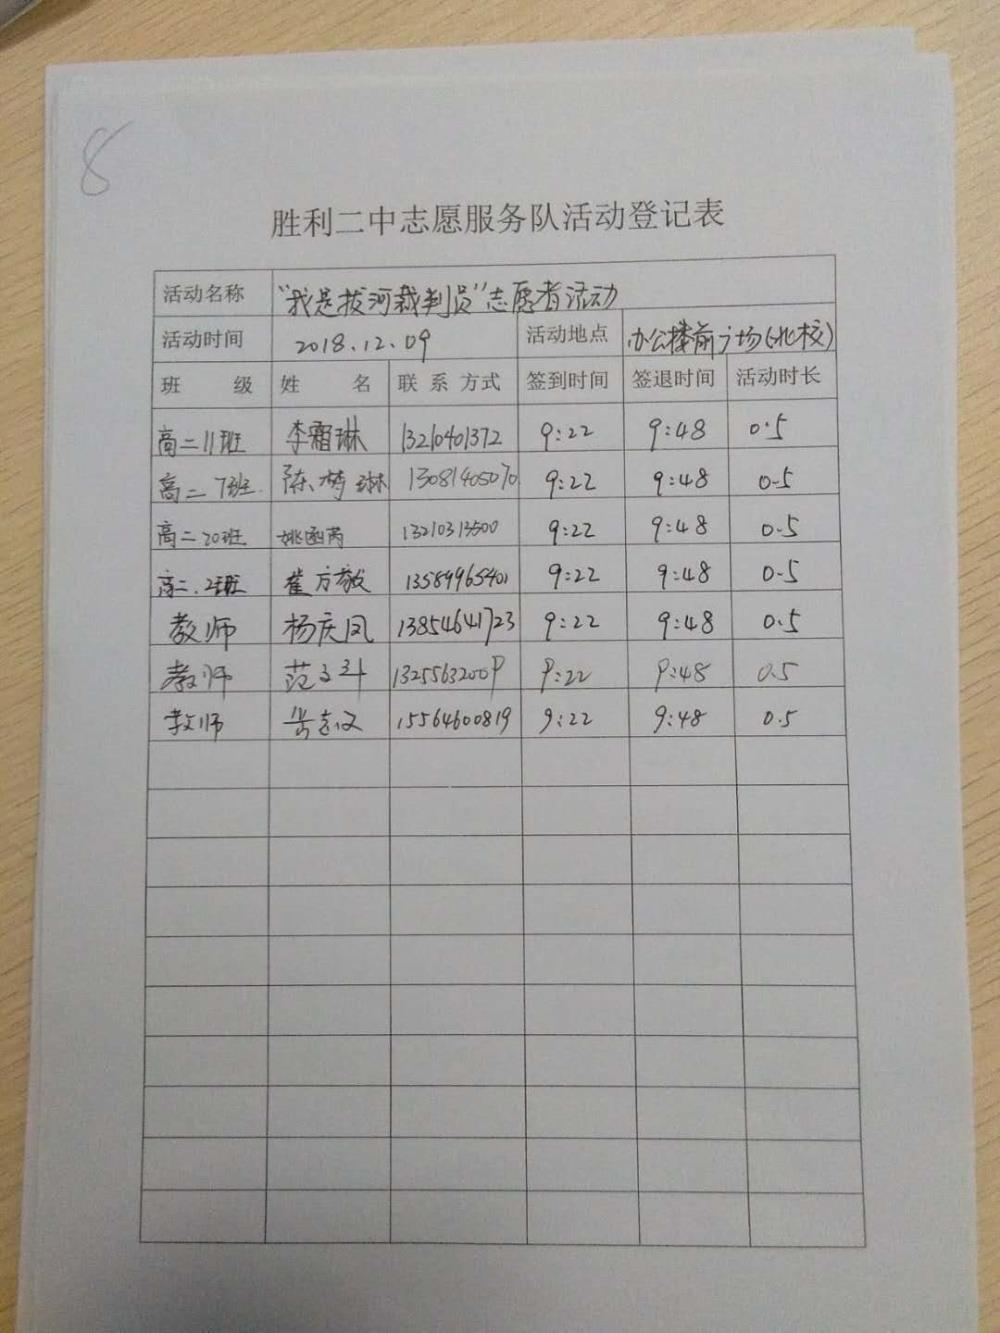 8
胜利二中志愿服务队活动登记表
活动名称 “我是拔河裁判员”志愿者活动
活动时间 2018.12.09 活动地点 办公楼前广场(北校)
班 级 姓 名 联系方式 签到时间 签退时间 活动时长
高二11班 李霜琳 13210401372 9:22 9:48 0.5
高二7班 陈梦琳 13081405070 9:22 9:48 0.5
高二20班 姚函芮 13210313500 9:22 9:48 0.5
高二.2班 崔方毅 13589965401 9:22 9:48 0.5
教师 杨庆凤 13854641723 9:22 9:48 0.5
教师 范 13255632009 9:22 9:48 0.5
教师 15564600819 9:22 9:48 0.5